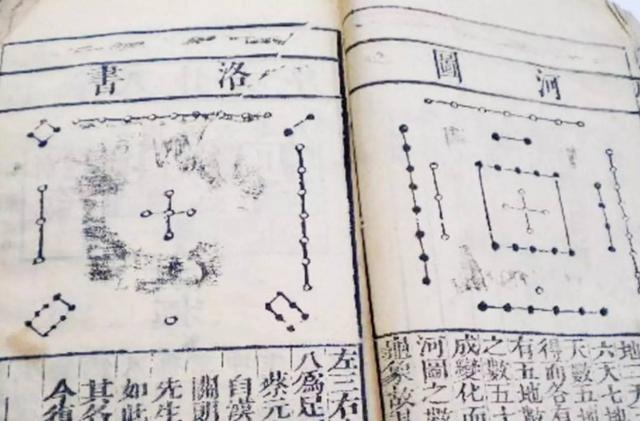 河圖
地二天
六天七地
天數五
得而各有
有五地數
之數五十
成變化而
河圖之數
龜象故
洛書
左三右
八爲足
蔡元
自漢
關朗
先生
如此
其各
今復